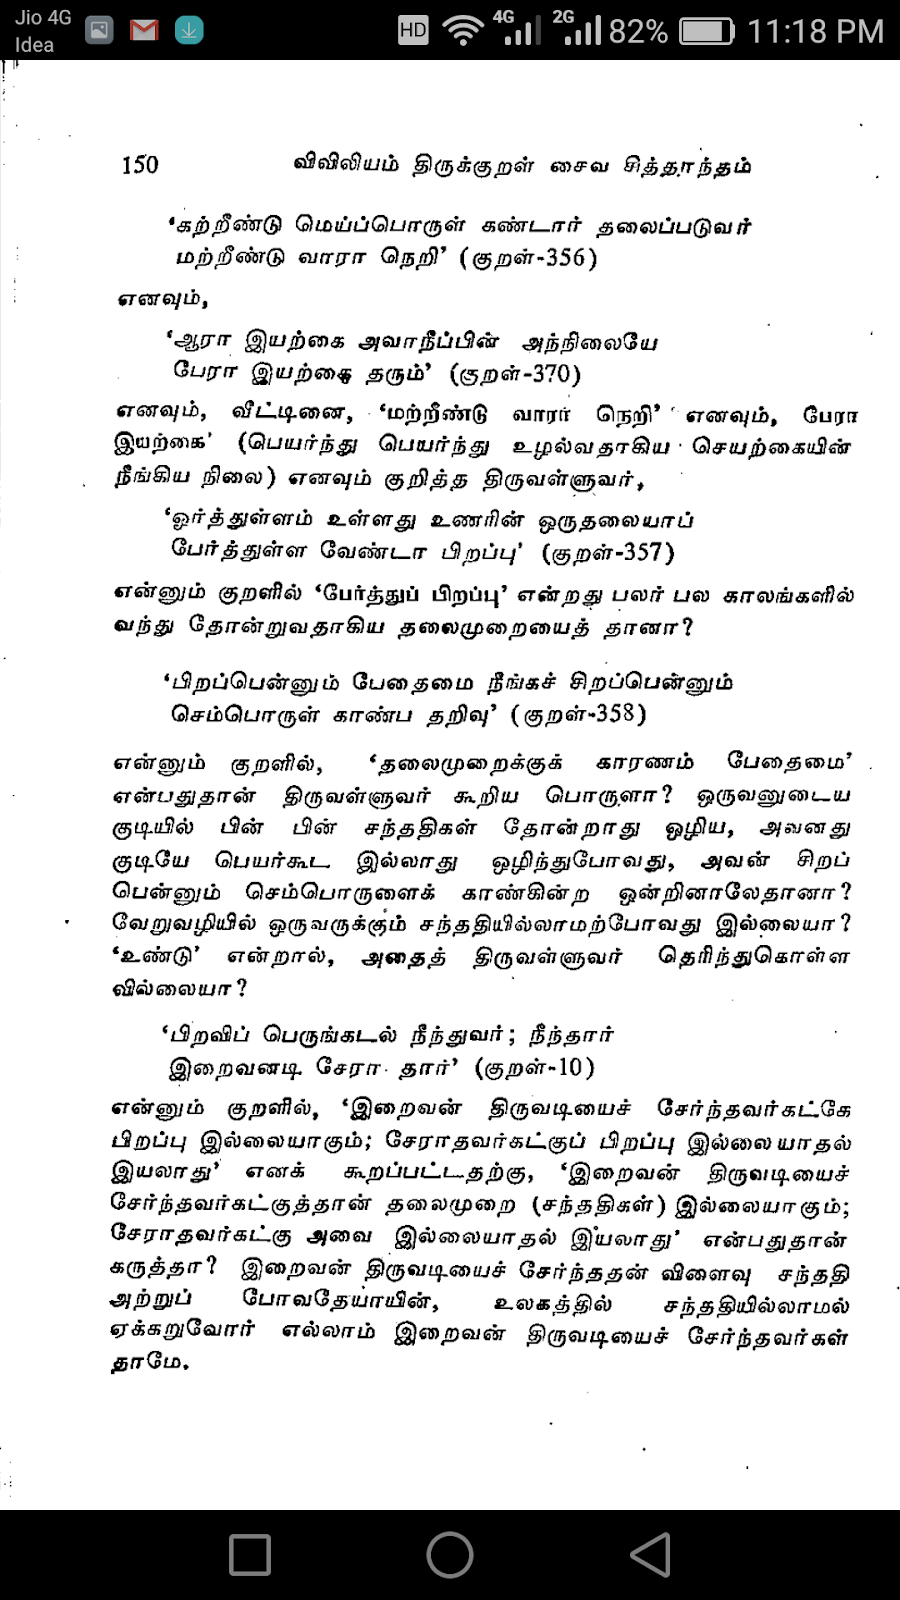 Jio 4G
Idea
HD 4G 2G 82% 11:18 PM
150 விவிலியம் திருக்குறள் சைவ சித்தாந்தம்
‘கற்றீண்டு மெய்ப்பொருள் கண்டார் தலைப்படுவர்
மற்றீண்டு வாரா நெறி’ (குறள்-356)
எனவும்,
‘ஆரா இயற்கை அவாநீப்பின் அந்நிலையே
பேரா இயற்கை தரும்’ (குறள்-370)
எனவும், வீட்டினை, ‘மற்றீண்டு வாரா நெறி’ எனவும், பேரா
இயற்கை’ (பெயர்ந்து பெயர்ந்து உழல்வதாகிய செயற்கையின்
நீங்கிய நிலை) எனவும் குறித்த திருவள்ளுவர்,
‘ஓர்த்துள்ளம் உள்ளது உணரின் ஒருதலையாப்
பேர்த்துள்ள வேண்டா பிறப்பு’ (குறள்-357)
என்னும் குறளில் ‘பேர்த்துப் பிறப்பு’ என்றது பலர் பல காலங்களில்
வந்து தோன்றுவதாகிய தலைமுறையைத் தானா?
‘பிறப்பென்னும் பேதைமை நீங்கச் சிறப்பென்னும்
செம்பொருள் காண்ப தறிவு’ (குறள்-358)
என்னும் குறளில், ‘தலைமுறைக்குக் காரணம் பேதைமை’
என்பதுதான் திருவள்ளுவர் கூறிய பொருளா? ஒருவனுடைய
குடியில் பின் பின் சந்ததிகள் தோன்றாது ஒழிய, அவனது
குடியே பெயர்கூட இல்லாது ஒழிந்துபோவது, அவன் சிறப்
பென்னும் செம்பொருளைக் காண்கின்ற ஒன்றினாலேதானா?
வேறுவழியில் ஒருவருக்கும் சந்ததியில்லாமற்போவது இல்லையா?
‘உண்டு’ என்றால், அதைத் திருவள்ளுவர் தெரிந்துகொள்ள
வில்லையா?
‘பிறவிப் பெருங்கடல் நீந்துவர்; நீந்தார்
இறைவனடி சேரா தார்’ (குறள்-10)
என்னும் குறளில், ‘இறைவன் திருவடியைச் சேர்ந்தவர்கட்கே
பிறப்பு இல்லையாகும்; சேராதவர்கட்குப் பிறப்பு இல்லையாதல்
இயலாது’ எனக் கூறப்பட்டதற்கு, ‘இறைவன் திருவடியைச்
சேர்ந்தவர்கட்குத்தான் தலைமுறை (சந்ததிகள்) இல்லையாகும்;
சேராதவர்கட்கு அவை இல்லையாதல் இயலாது’ என்பதுதான்
கருத்தா? இறைவன் திருவடியைச் சேர்ந்ததன் விளைவு சந்ததி
அற்றுப் போவதேயாயின், உலகத்தில் சந்ததியில்லாமல்
ஏக்கறுவோர் எல்லாம் இறைவன் திருவடியைச் சேர்ந்தவர்கள்
தாமே.